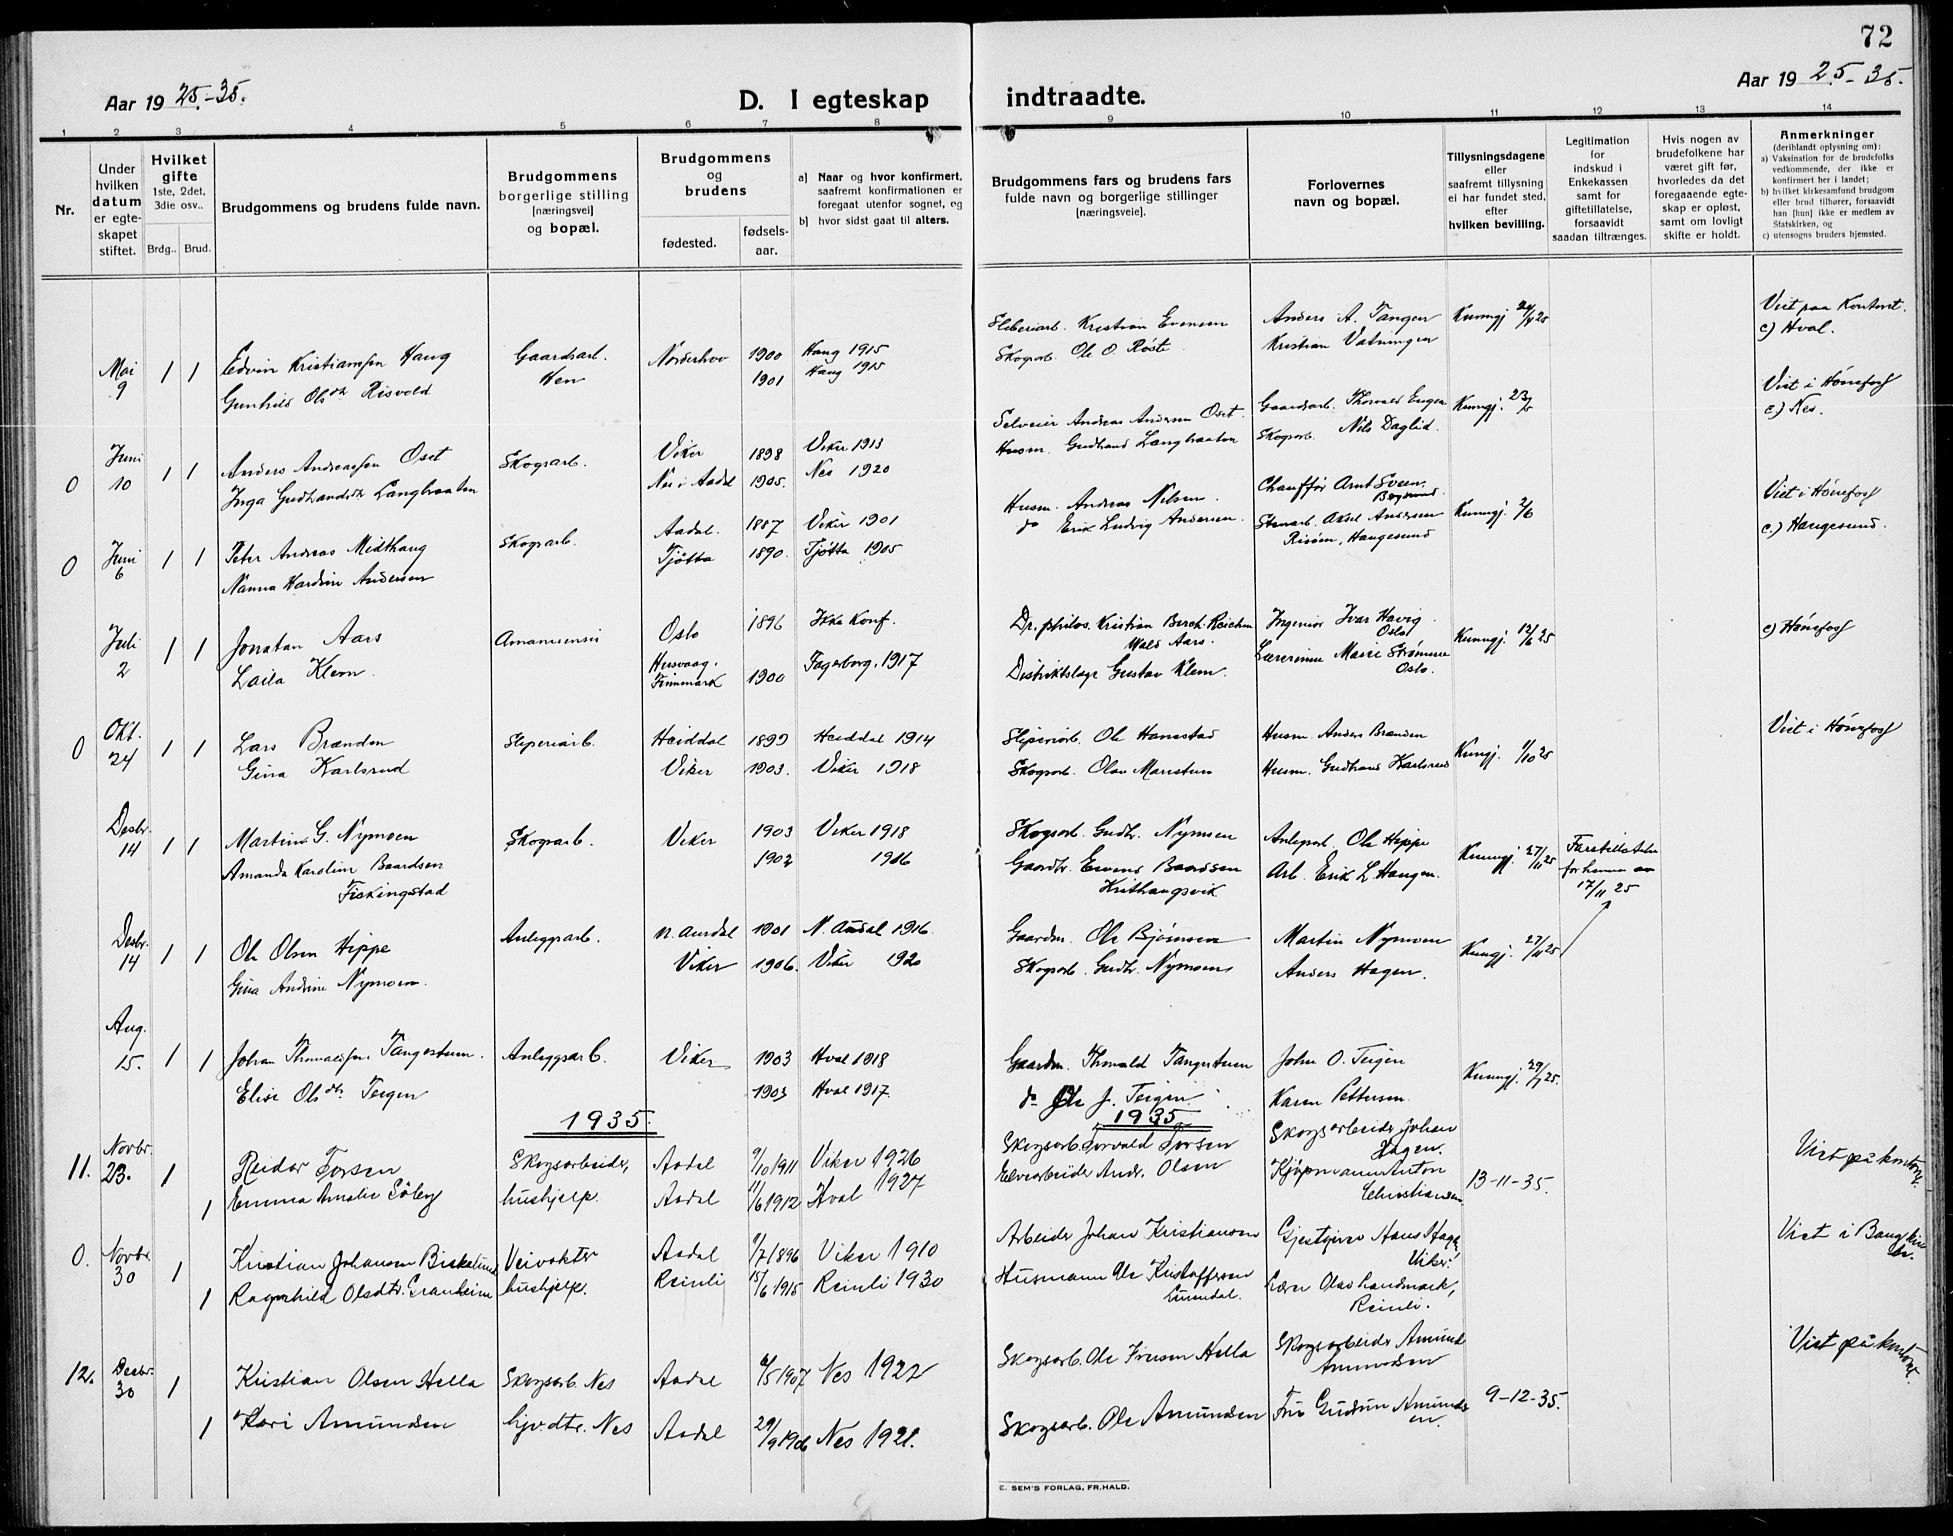 72
Aar 1925-35.
D. I egteskap indtraadte.
Aar 1925-35.
1 2 3 4 5 6 7 8 9 10 11 12 13 14
Nr.
Under hvilken datum er egteskapet stiftet.
Hvilket gifte
1ste, 2det, 3die osv..
Brdg.. Brud.
Brudgommens og brudens fulde navn.
Brudgommens borgerlige stilling [næringsvei] og bopæl.
Brudgommens og brudens
fødested.
fødsels-aar.
a] Naar og hvor konfirmert, saafremt konfirmationen er foregaat utenfor sognet, og
b] hvor sidst gaat til alters.
Brudgommens fars og brudens fars fulde navn og borgerlige stillinger [næringsveie].
Forlovernes navn og bopæl.
Tillysningsdagene eller saafremt tillysning ei har fundet sted, efter hvilken bevilling.
Legitimation for indskud i Enkekassen samt for giftetillatelse, forsaavidt saadan tiltrænges.
Hvis nogen av brudefolkene har været gift før, hvorledes da det foregaaende egteskap er opløst, samt om lovligt skifte er holdt.
Anmerkninger
(deriblandt oplysning om):
a) Vaksination for de brudefolks vedkommende, der ikke er konfirmert her i landet;
b) hvilket kirkesamfund brudgom eller brud tilhører, forsaavidt han [hun] ikke er medlem av Statskirken, og
c) utensogns bruders hjemsted.
Mai 9 1 1 Edvin Kristianssen Haug Gaardsarb. Hen Norderhov 1900 Haug 1915 Sliberiarb. Kristian Evensen Anders A. Tangen Kunngj. 24/4 25 Viet paa Kontoret.
Gunhild Olsdtr Risvold 1901 Haug 1915 Skogarb. Ole O. Røste Kristian Vatningen c) Hval.
0 Juni 10 1 1 Anders Andreassen Oset Skogsarb. Viker 1898 Viker 1913 Selveier Andreas Andersen Oset. Gaardsarb. Thorvald Engen Kunngj. 23/5 Viet i Hønefoss
Inga Gudbrandsdtr Langbraaten Nes i Aadal 1905. Nes 1920 Husm. Gudbrand Langbraaten Skogarb. Nils Daglid. c) Nes.
0 Juni 6 1 1 Peter Andreas Midthaug Skogsarb. Aadal. 1887 Viker 1901 Husm. Andreas Nilsen. Chauffør Arnt Sveen, Kunngj. 2/6 Viet i Hønefoss
Nanna Hardine Andersen Tjøtta 1890. Tjøtta 1905 do Erik Ludvig Andersen. Stenarb. Aksel Andersen Risøen, Haugesund c) Haugesund.
Juli 2 1 1 Jonatan Aars Amanuensis Oslo 1896 Ikke Konf. Dr. philos. Kristian Birch-Reichenwald Aars. Ingeniør Ivar Havig. Oslo Kunngj. 12/6 25 c) Hønefoss
Laila Klem. Finnmark 1900 Fagerborg. 1917 Distriktslæge Gustav Klem. Lærerinne Marie Strømme Oslo.
0 Okt. 24 1 1 Lars Brænden Sliperiarb. Heiddal 1899 Heiddal 1914 Sliperiarb. Ole Hanestad Husm. Anders Brænden Kungj. 1/10 25 Viet i Hønefoss
Gina Karlsrud Viker 1903. Viker 1918 Skogsarb. Olav Marstuen Husm. Gudbrand Karlsrud
Desbr. 14 1 1 Martin G. Nymoen Skogsarb. Viker 1903 Viker 1918 Skogsarb. Gudbr. Nymoen Anlegarb. Ole Hippe Kunngj. 27/11 25
Amanda Karoline Baardsen Fiskingstad 1902 1916 Gaardbr. Baardsen Arb. Erik L. Haugen. 17/11 25
Desbr. 14 1 1 Ole Olsen Hippe Anleggsarb. N. Aurdal 1901 N. Aurdal 1916. Gaardm. Ole Bjørnsen Martin Nymoen Kunngj. 27/11 25
Gina Andrine Nymoen. Viker 1906. Viker 1920 Skogsarb. Gudbr. Nymoens Anders Hagen.
Aug. 15. 1 1 Johan Thorvaldsen Tangestuen. Anleggsarb. Viker 1903 Hval 1918 Gaardm. Thorvald Tangestuen John O. Teigen Kunngj. 29/7 25.
Elise Olsdtr. Teigen 1903 Hval 1917. do Ole J. Teigen. Karen Pettersen.
1935. 1935
11. Novbr. 23. 1 Reidar Torsen Skogsarbeider, Aadal 9/10 1911 Viker 1926 Skogsarb. Torvald Torsen Skogsarbeider Johan Hagen. Viet på kontoret.
1 Emma Amalie Söberg hushjelp. Aadal 11/6 1912 Hval 1927 Elvearbeider Andr. Olsen Kjøpmann Anton Christiansen 13-11-35.
0. Novbr. 30 1 Kristian Johansen Veivokter Aadal 1/7 1896 Viker 1910 Arbeider Johan Kristiansen Gjestgiver Hans Viker. Viet i
1 Ragnhild Olsdtr. Granheim hushjelp. Reinli 15/6 1915 Reinli 1930 Husmann Ole Kristoffersen Lærer Olav Landmark, Reinli.
12. Desbr. 30 1 Kristian Olsen Hella Skogsarb. Nes Aadal 6/5 1907 Nes 1922 Skogsarb. Ole Iversen Hella Skogsarbeider Amund Amundsen Viet på kontoret.
1 Kari Amundsen Gjv.dtr. Nes Aadal 29/9 1906 Nes 1921. Skogsarb. Ole Amundsen Fru Gudrun Amundsen. 9-12-35.
E. SEM'S FORLAG, FR.HALD.